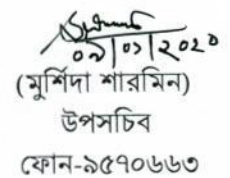 ০৯|০১|২০২০
(মুর্শিদা শারমিন)
উপসচিব
ফোন-৯৫৭০৬৬৩